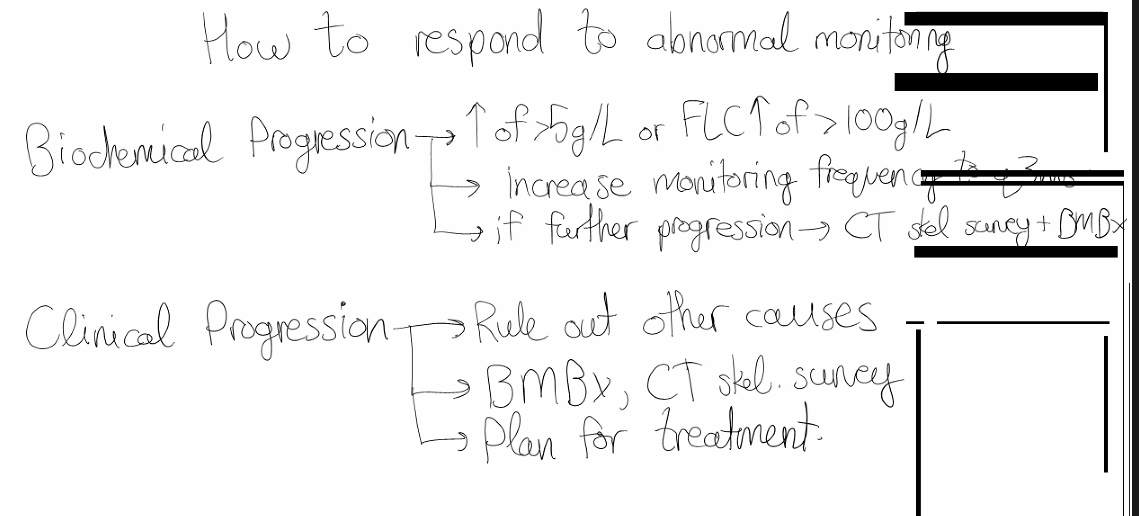 How to respond to abnormal monitoring
Biochemical Progression → ↑ of >5g/L or FLC↑ of >100g/L
→ increase monitoring frequency to q3mos
→ if further progression → CT skel survey + BMBx
Clinical Progression → Rule out other causes
→ BMBx, CT skel. survey
→ Plan for treatment.